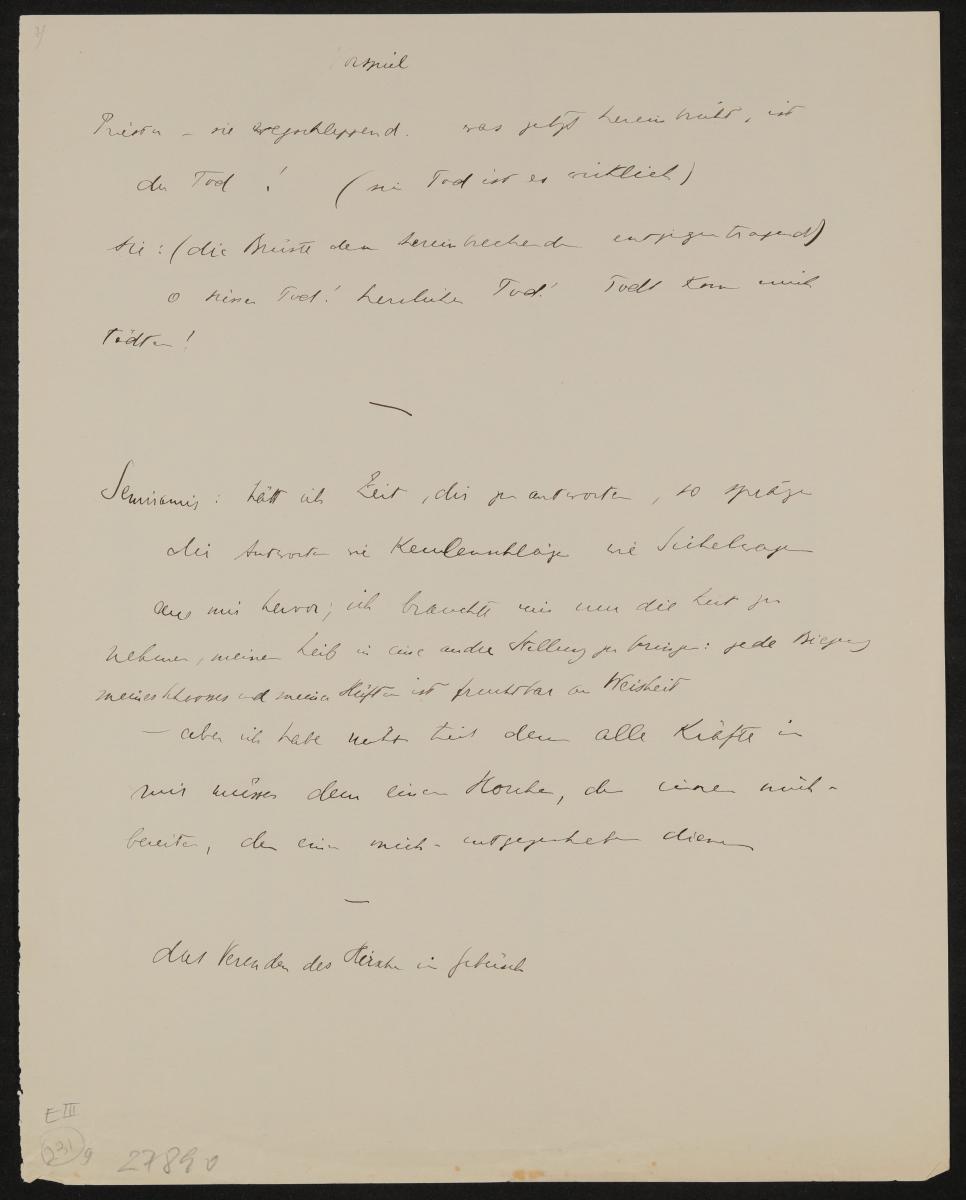 Vorspiel
Priester – sie wegschleppend. was jetzt hereintritt, ist
der Tod! (sein Tod ist es wirklich)
Sie: (die Brüste dem hereinbrechenden entgegentragend)
o süsser Tod! herrlicher Tod! Tod komm mich
tödten!
—
Semiramis: hätt ich Zeit, dir zu antworten, so sprängen
die Antworten wie Keulenschläge wie Sichelwagen
aus mir hervor; ich brauchte mir nur die Zeit zu
nehmen, meinen Leib in eine andre Stellung zu bringen: jede Biegung
meines Schosses und meiner Hüften ist fruchtbar an Weisheit
– aber ich habe nicht Zeit denn alle Kräfte in
mir müssen dem einen Horchen, dem einen mich-
bereiten, dem einen mich-entgegenheben dienen
—
das Verenden des Hirsches im Gebüsch
E III
231
9
27890